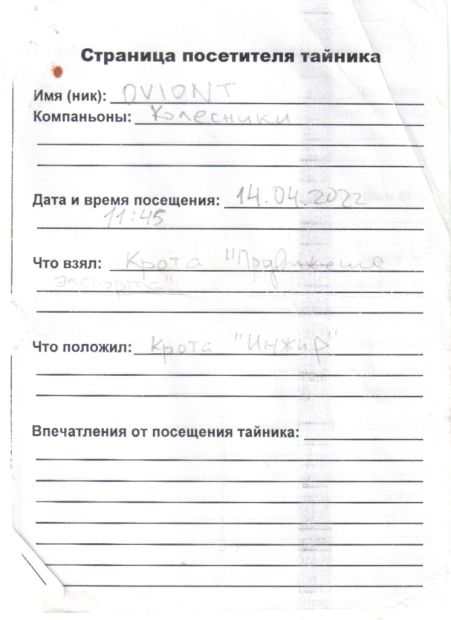 Страница посетителя тайника
Имя (ник): OVIONT
Компаньоны: Колесники
Дата и время посещения: 14.04.2022
11:45
Что взял: Крота "Продвижение
экспорта"
Что положил: Крота "Инжир"
Впечатления от посещения тайника: